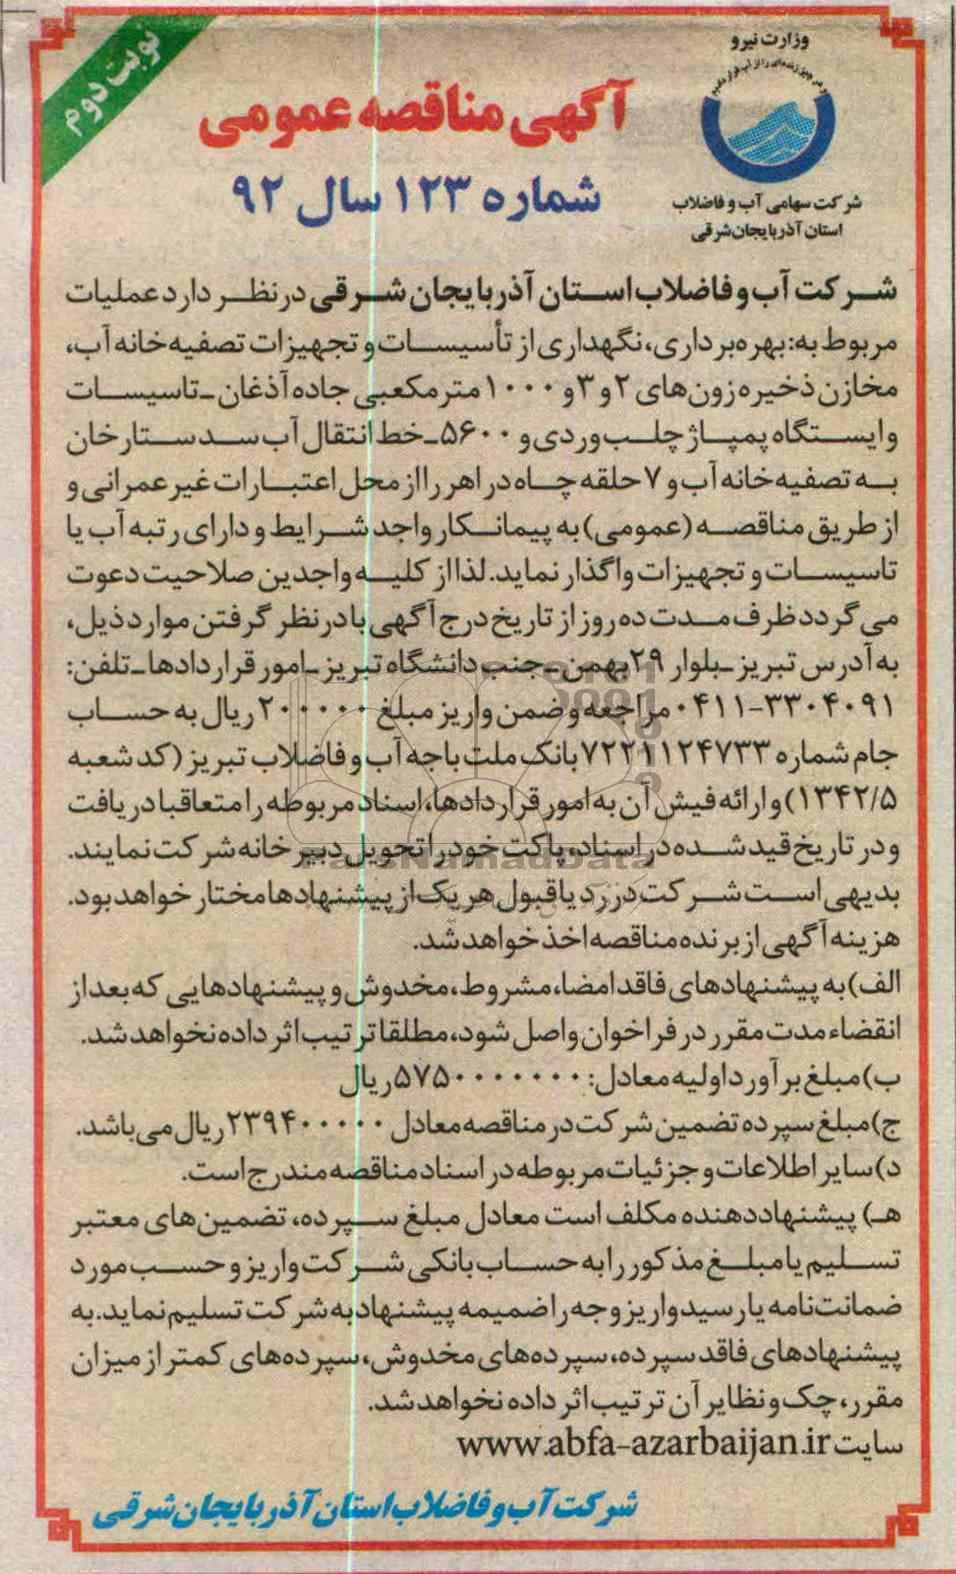 نوبت دوم
وزارت نیرو
آگهی مناقصه عمومی
شماره ۱۲۳ سال ۹۲
شرکت سهامی آب و فاضلاب
استان آذربایجان شرقی
شرکت آب و فاضلاب استان آذربایجان شرقی در نظر دارد عملیات
مربوط به: بهره‌برداری، نگهداری از تأسیسات و تجهیزات تصفیه خانه آب،
مخازن ذخیره زون‌های ۲ و ۳ و ۱۰۰۰ مترمکعبی جاده آذغان ـ تاسیسات
و ایستگاه پمپاژ چلب وردی و ۵۶۰۰ ـ خط انتقال آب سد ستارخان
به تصفیه خانه آب و ۷ حلقه چاه در اهر را از محل اعتبارات غیر عمرانی و
از طریق مناقصه (عمومی) به پیمانکار واجد شرایط و دارای رتبه آب یا
تاسیسات و تجهیزات واگذار نماید. لذا از کلیه واجدین صلاحیت دعوت
می گردد ظرف مدت ده روز از تاریخ درج آگهی با در نظر گرفتن موارد ذیل،
به آدرس تبریز ـ بلوار ۲۹ بهمن ـ جنب دانشگاه تبریز ـ امور قراردادها ـ تلفن:
۰۴۱۱-۳۳۰۴۰۹۱ مراجعه و ضمن واریز مبلغ ۲۰۰۰۰۰ ریال به حساب
جام شماره ۷۲۲۱۱۲۴۷۳۳ بانک ملت باجه آب و فاضلاب تبریز (کد شعبه
۱۳۴۲/۵) و ارائه فیش آن به امور قراردادها، اسناد مربوطه را متعاقبا دریافت
و در تاریخ قید شده در اسناد، پاکت خود را تحویل دبیرخانه شرکت نمایند.
بدیهی است شرکت در رد یا قبول هر یک از پیشنهادها مختار خواهد بود.
هزینه آگهی از برنده مناقصه اخذ خواهد شد.
الف) به پیشنهادهای فاقد امضا، مشروط، مخدوش و پیشنهادهایی که بعد از
انقضاء مدت مقرر در فراخوان واصل شود، مطلقا ترتیب اثر داده نخواهد شد.
ب) مبلغ برآورد اولیه معادل: ۵۷۵۰۰۰۰۰۰۰ ریال
ج) مبلغ سپرده تضمین شرکت در مناقصه معادل ۲۳۹۴۰۰۰۰۰ ریال می باشد.
د) سایر اطلاعات و جزئیات مربوطه در اسناد مناقصه مندرج است.
هـ) پیشنهاددهنده مکلف است معادل مبلغ سپرده، تضمین‌های معتبر
تسلیم یا مبلغ مذکور را به حساب بانکی شرکت واریز و حسب مورد
ضمانت‌نامه یا رسید واریز وجه را ضمیمه پیشنهاد به شرکت تسلیم نماید. به
پیشنهادهای فاقد سپرده، سپرده‌های مخدوش، سپرده‌های کمتر از میزان
مقرر، چک و نظایر آن ترتیب اثر داده نخواهد شد.
سایت www.abfa-azarbaijan.ir
شرکت آب و فاضلاب استان آذربایجان شرقی
ParsNamadData